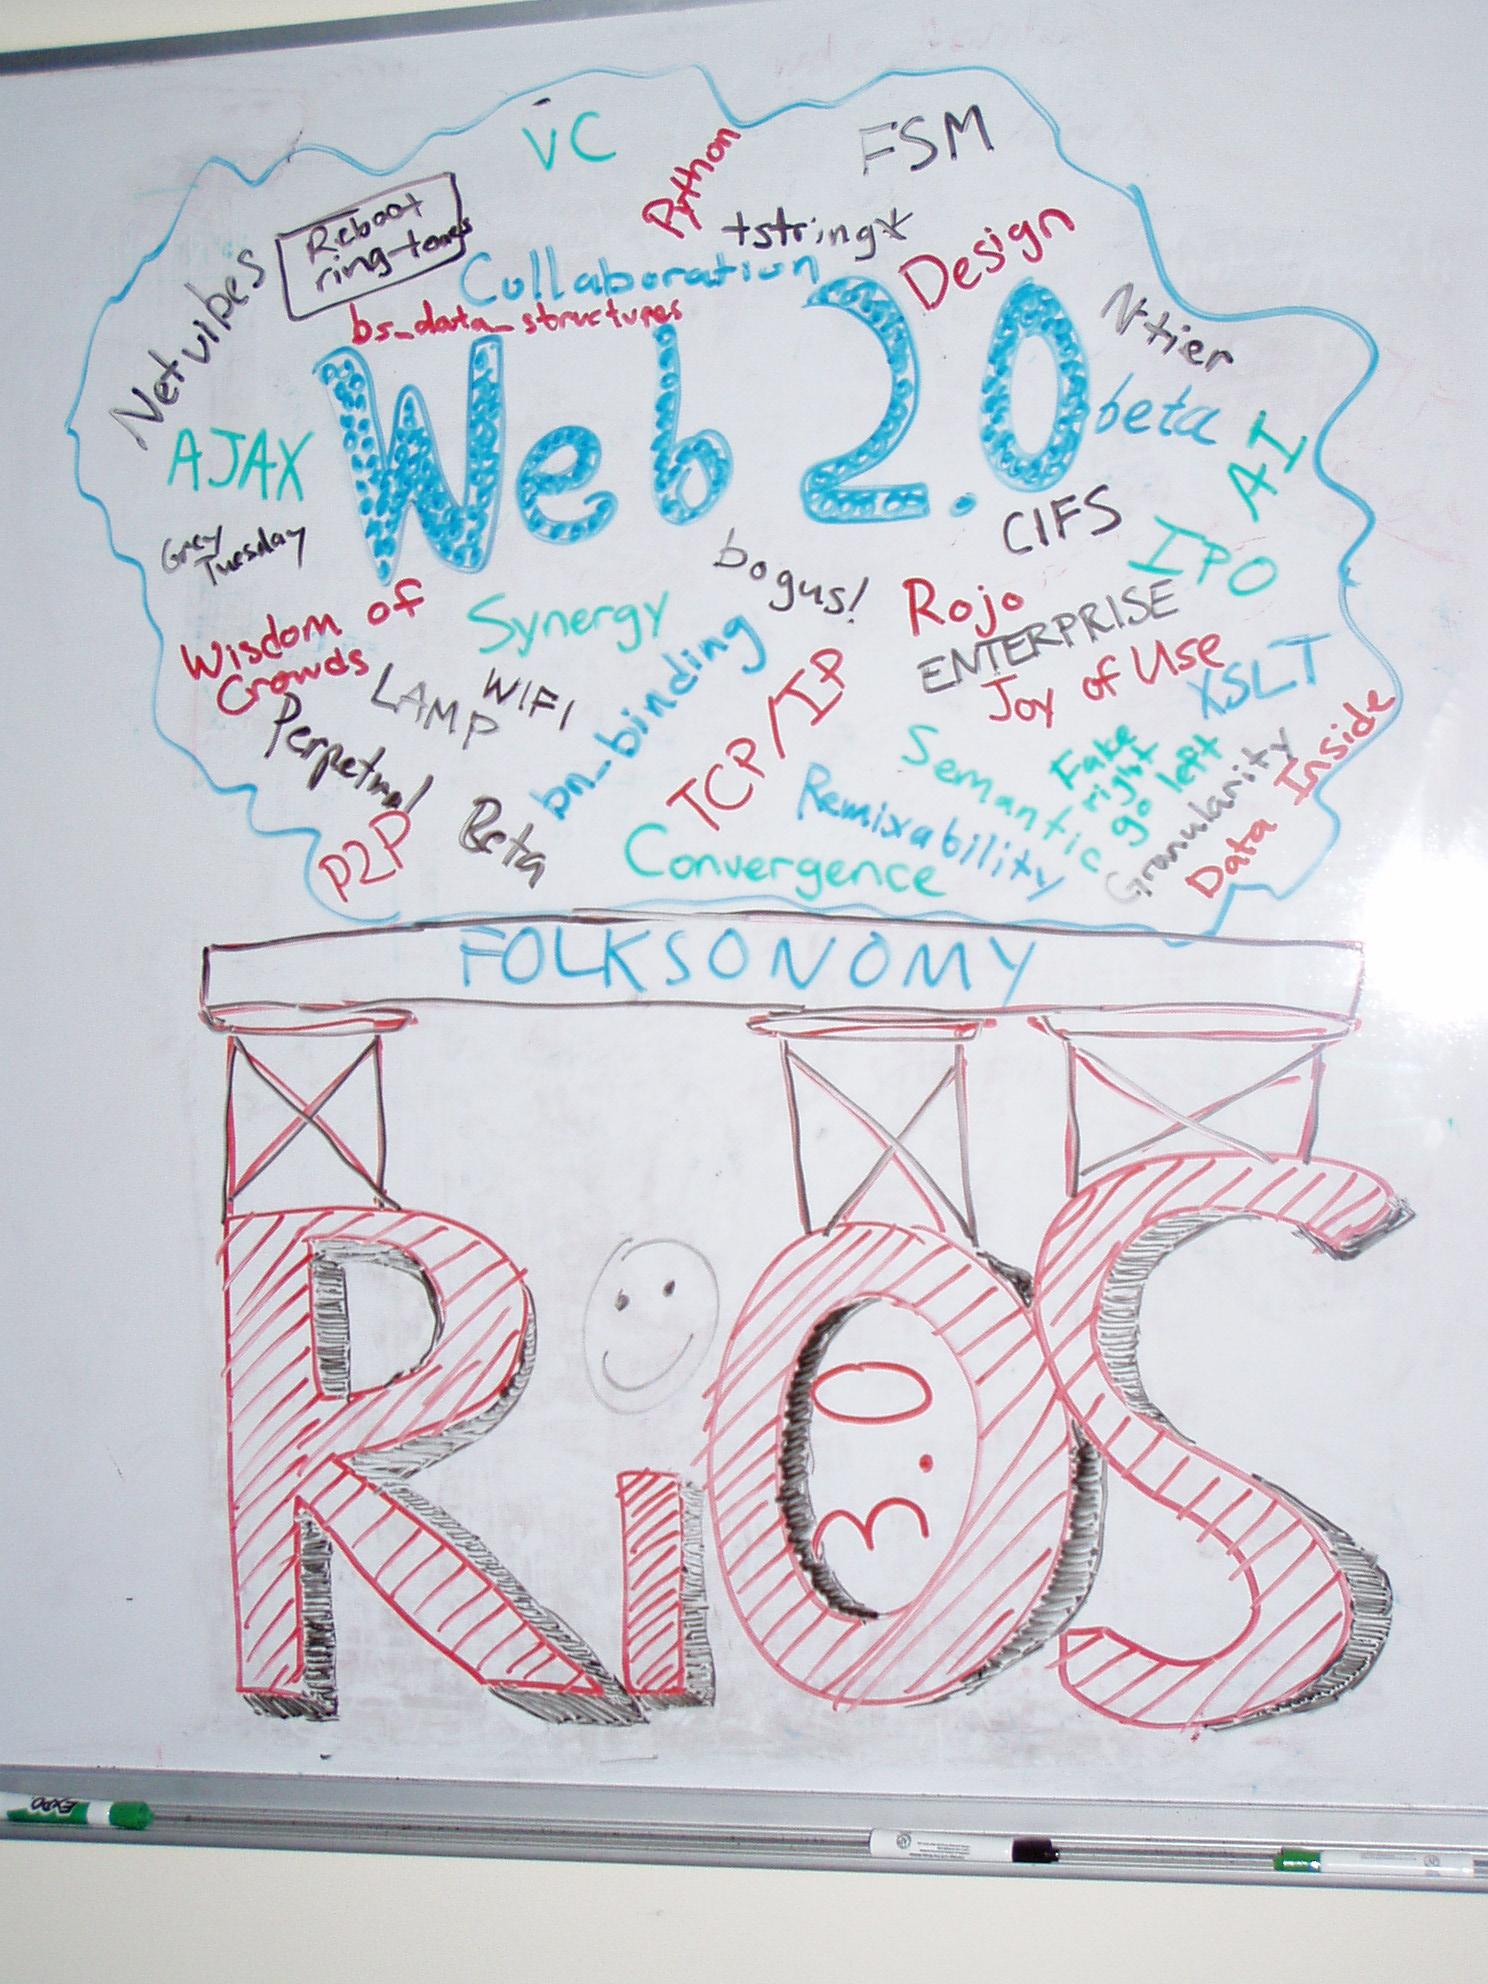 VC
FSM
Python
Reboot
ring-tones
tstring*
Design
Collaboration
Netvibes
bs_data_structures
N-tier
Web 2.0
beta
AJAX
AI
CIFS
Grey
Tuesday
bogus!
IPO
Wisdom of
Crowds
Synergy
Rojo
ENTERPRISE
LAMP
WIFI
bn_binding
TCP/IP
Joy of Use
XSLT
Perpetual
Beta
Semantic
Fake
right
go left
Remixability
Granularity
Data Inside
P2P
Convergence
FOLKSONOMY
RiOS
3.0
EXPO